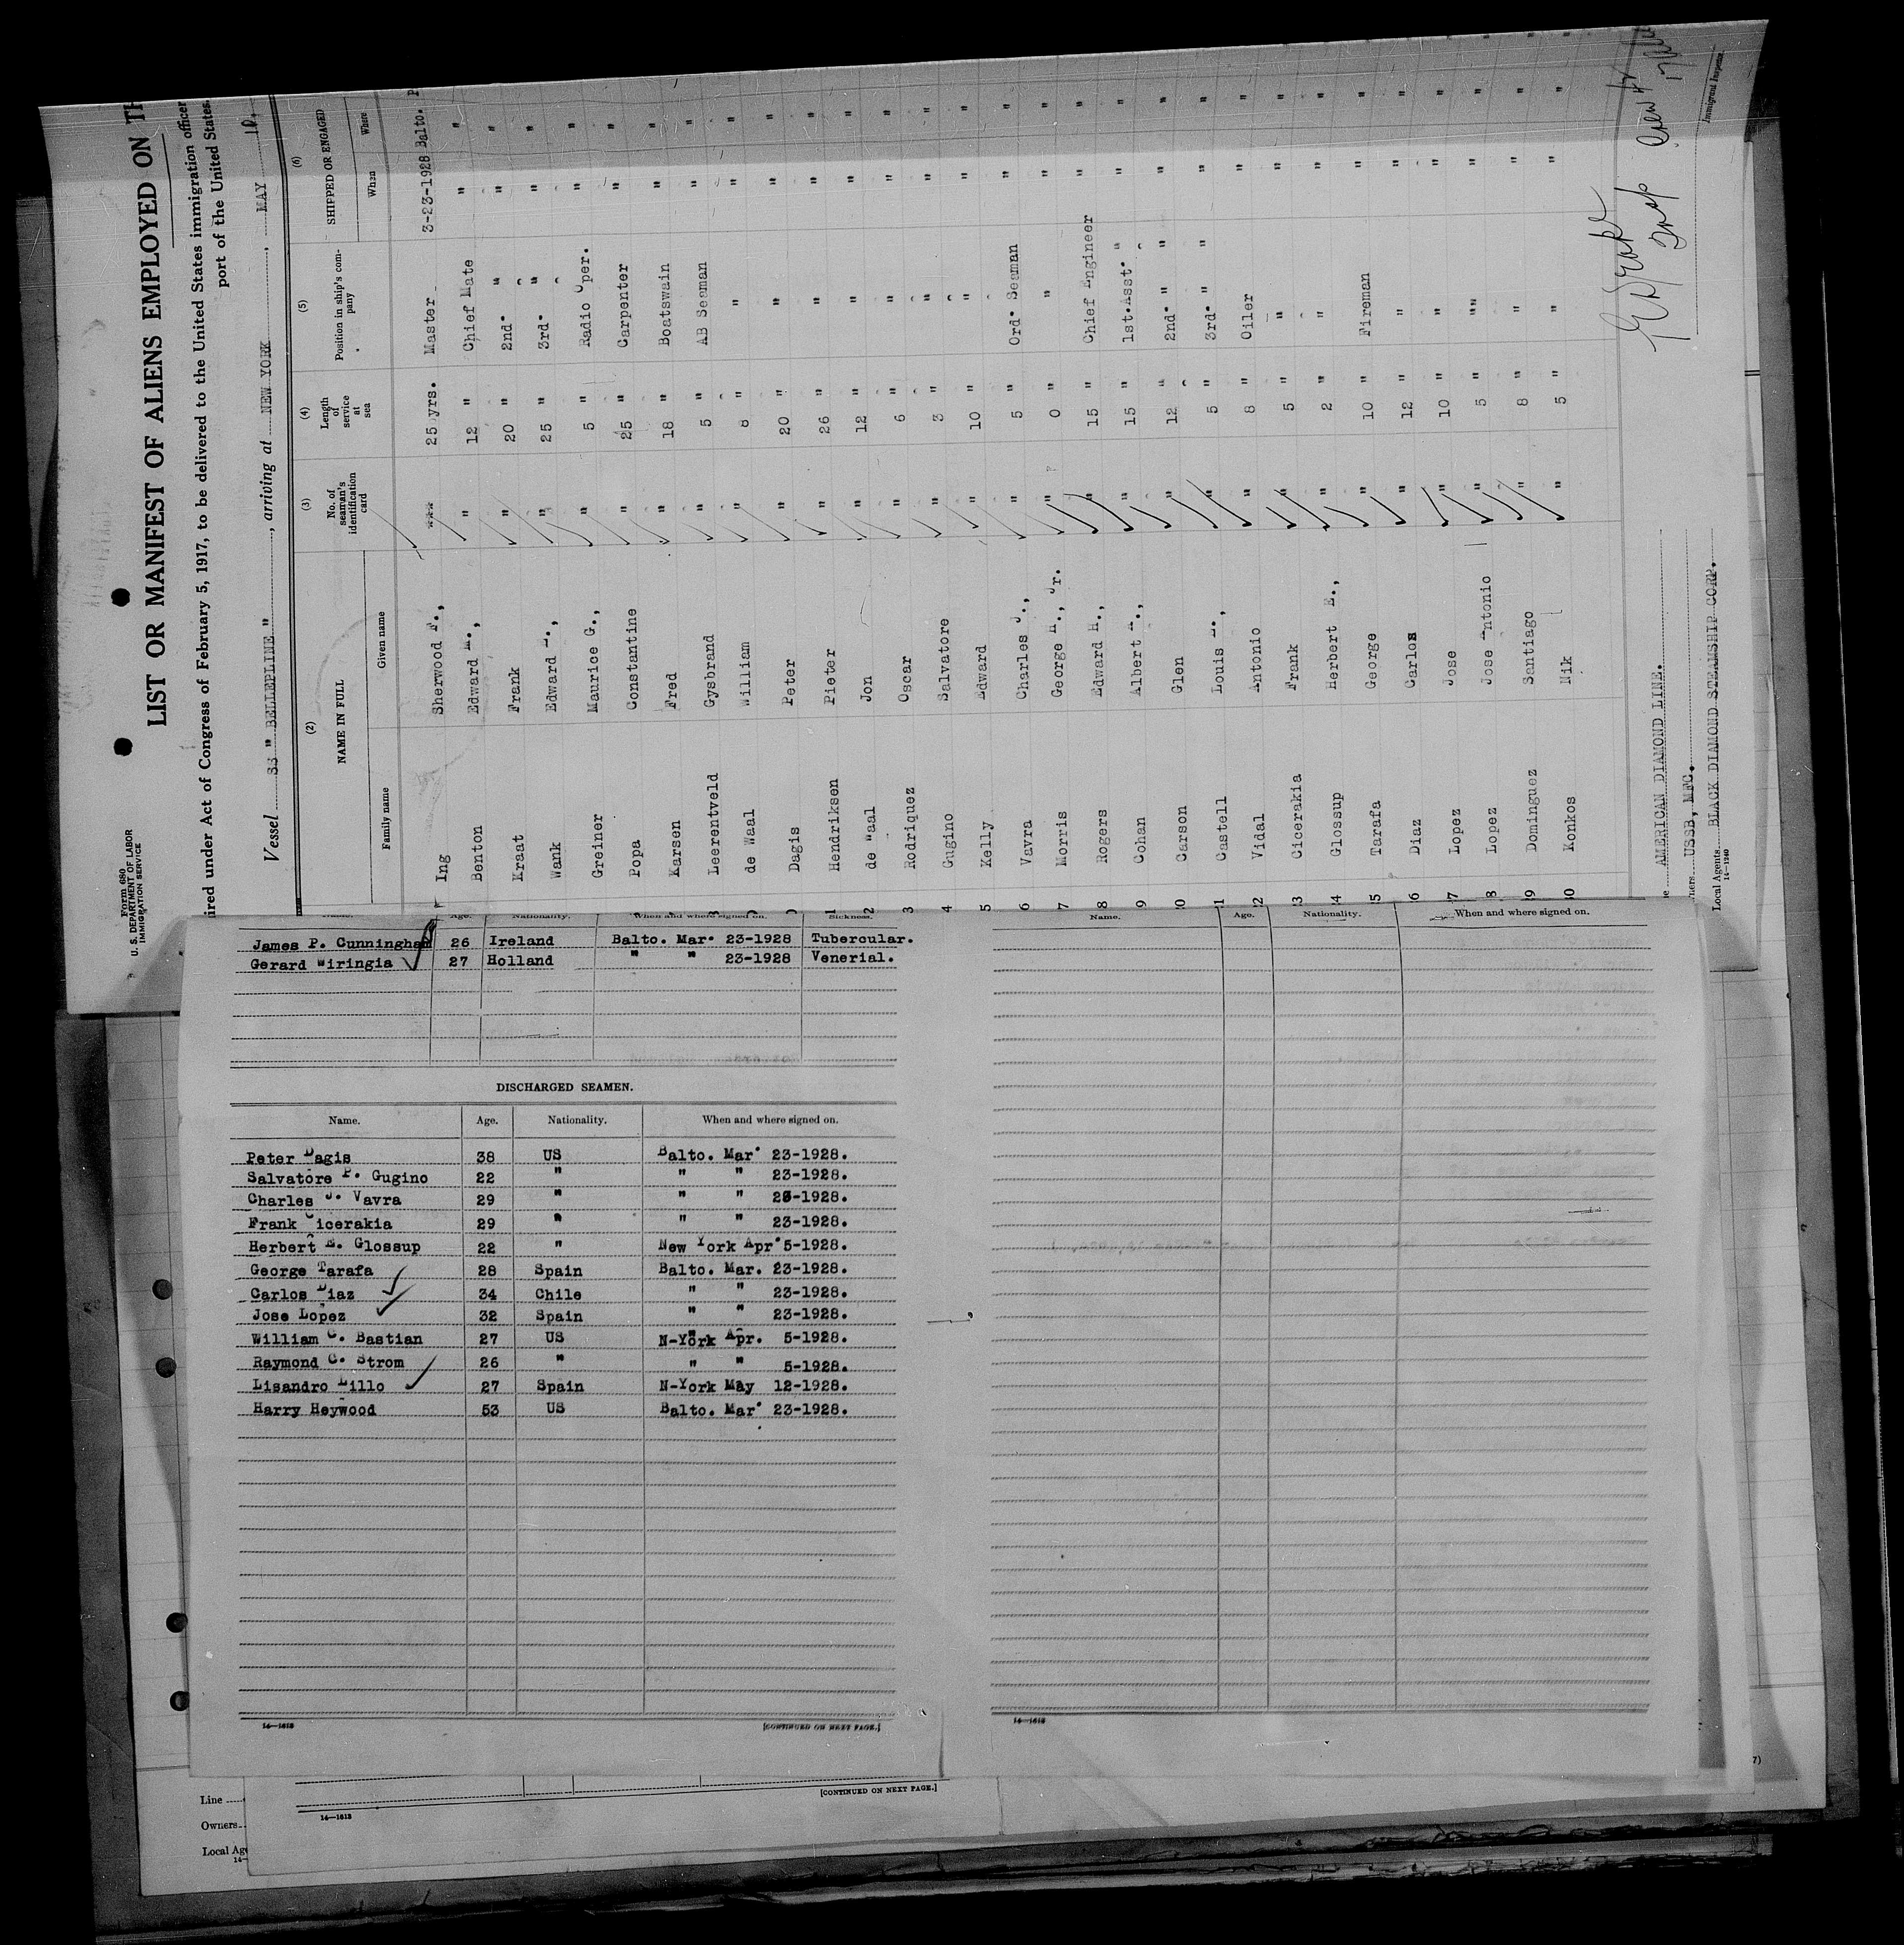 Form 680
U. S. DEPARTMENT OF LABOR
IMMIGRATION SERVICE
LIST OR MANIFEST OF ALIENS EMPLOYED ON
ired under Act of Congress of February 5, 1917, to be delivered to the United States immigration officer
port of the United States.
Vessel SS " BELLEPLINE ", arriving at NEW YORK, MAY
(2) (3) (4) (5) (6)
NAME IN FULL No. of seaman's identification card Length of service at sea Position in ship's company SHIPPED OR ENGAGED
Family name Given name When Where
Ing Sherwood F., 25 yrs. Master 3-23-1928 Balto.
Benton Edward 12 " Chief Mate " "
Kraat Frank " 20 " 2nd " " "
Wank Edward " 25 " 3rd " " "
Greiner Maurice G., " 5 " Radio Oper. " "
Popa Constantine " 25 " Carpenter " "
Karsen Fred " 18 " Boatswain " "
Leerentveld Gysbrand " 5 " AB Seaman " "
de Waal William " 8 " " " "
Dagis Peter " 20 " " " "
1 Hendriksen Pieter " 26 " " " "
2 de Waal Jon " 12 " " " "
3 Rodriquez Oscar " 6 " " " "
4 Gugino Salvatore " 3 " " " "
5 Kelly Edward " 10 " " " "
6 Vavra Charles J., " 5 " Ord. Seaman " "
7 Morris George H., Jr. " 0 " " " "
8 Rogers Edward H., " 15 " Chief Engineer " "
9 Cohan Albert " 15 " 1st. Asst. " " "
0 Carson Glen " 12 " 2nd. " " " "
1 Castell Louis " 5 " 3rd. " " " "
2 Vidal Antonio " 8 " Oiler " "
3 Cicerakia Frank " 5 " " " "
4 Glossup Herbert E., " 2 " " " "
5 Tarafa George " 10 " Fireman " "
6 Diaz Carlos " 12 " " " "
7 Lopez Jose " 10 " " " "
8 Lopez Jose Antonio " 5 " " " "
9 Dominguez Santiago " 8 " " " "
0 Konkos Nik " 5 " " " "
AMERICAN DIAMOND LINE.
USSB, MFC.
Local Agents BLACK DIAMOND STEAMSHIP CORP.
14-1240
Immigrant Inspector.
Name. Age. Nationality. When and where signed on. Sickness.
James P. Cunningham 26 Ireland Balto. Mar. 23-1928 Tubercular.
Gerard Wiringia 27 Holland " " 23-1928 Venerial.
DISCHARGED SEAMEN.
Name. Age. Nationality. When and where signed on.
Peter Dagis 38 US Balto. Mar. 23-1928.
Salvatore P. Gugino 22 " " " 23-1928.
Charles J. Vavra 29 " " " 23-1928.
Frank Cicerakia 29 " " " 23-1928.
Herbert E. Glossup 22 " New York Apr. 5-1928.
George Tarafa 28 Spain Balto. Mar. 23-1928.
Carlos Diaz 34 Chile " " 23-1928.
Jose Lopez 32 Spain " " 23-1928.
William C. Bastian 27 US N-York Apr. 5-1928.
Raymond C. Strom 26 " " " 5-1928.
Lisandro Lillo 27 Spain N-York May 12-1928.
Harry Heywood 53 US Balto. Mar. 23-1928.
14-1613
[CONTINUED ON NEXT PAGE.]
Name. Age. Nationality. When and where signed on.
14-1613
[CONTINUED ON NEXT PAGE.]
14-1613
Line
Owners
Local Age
14-
7)